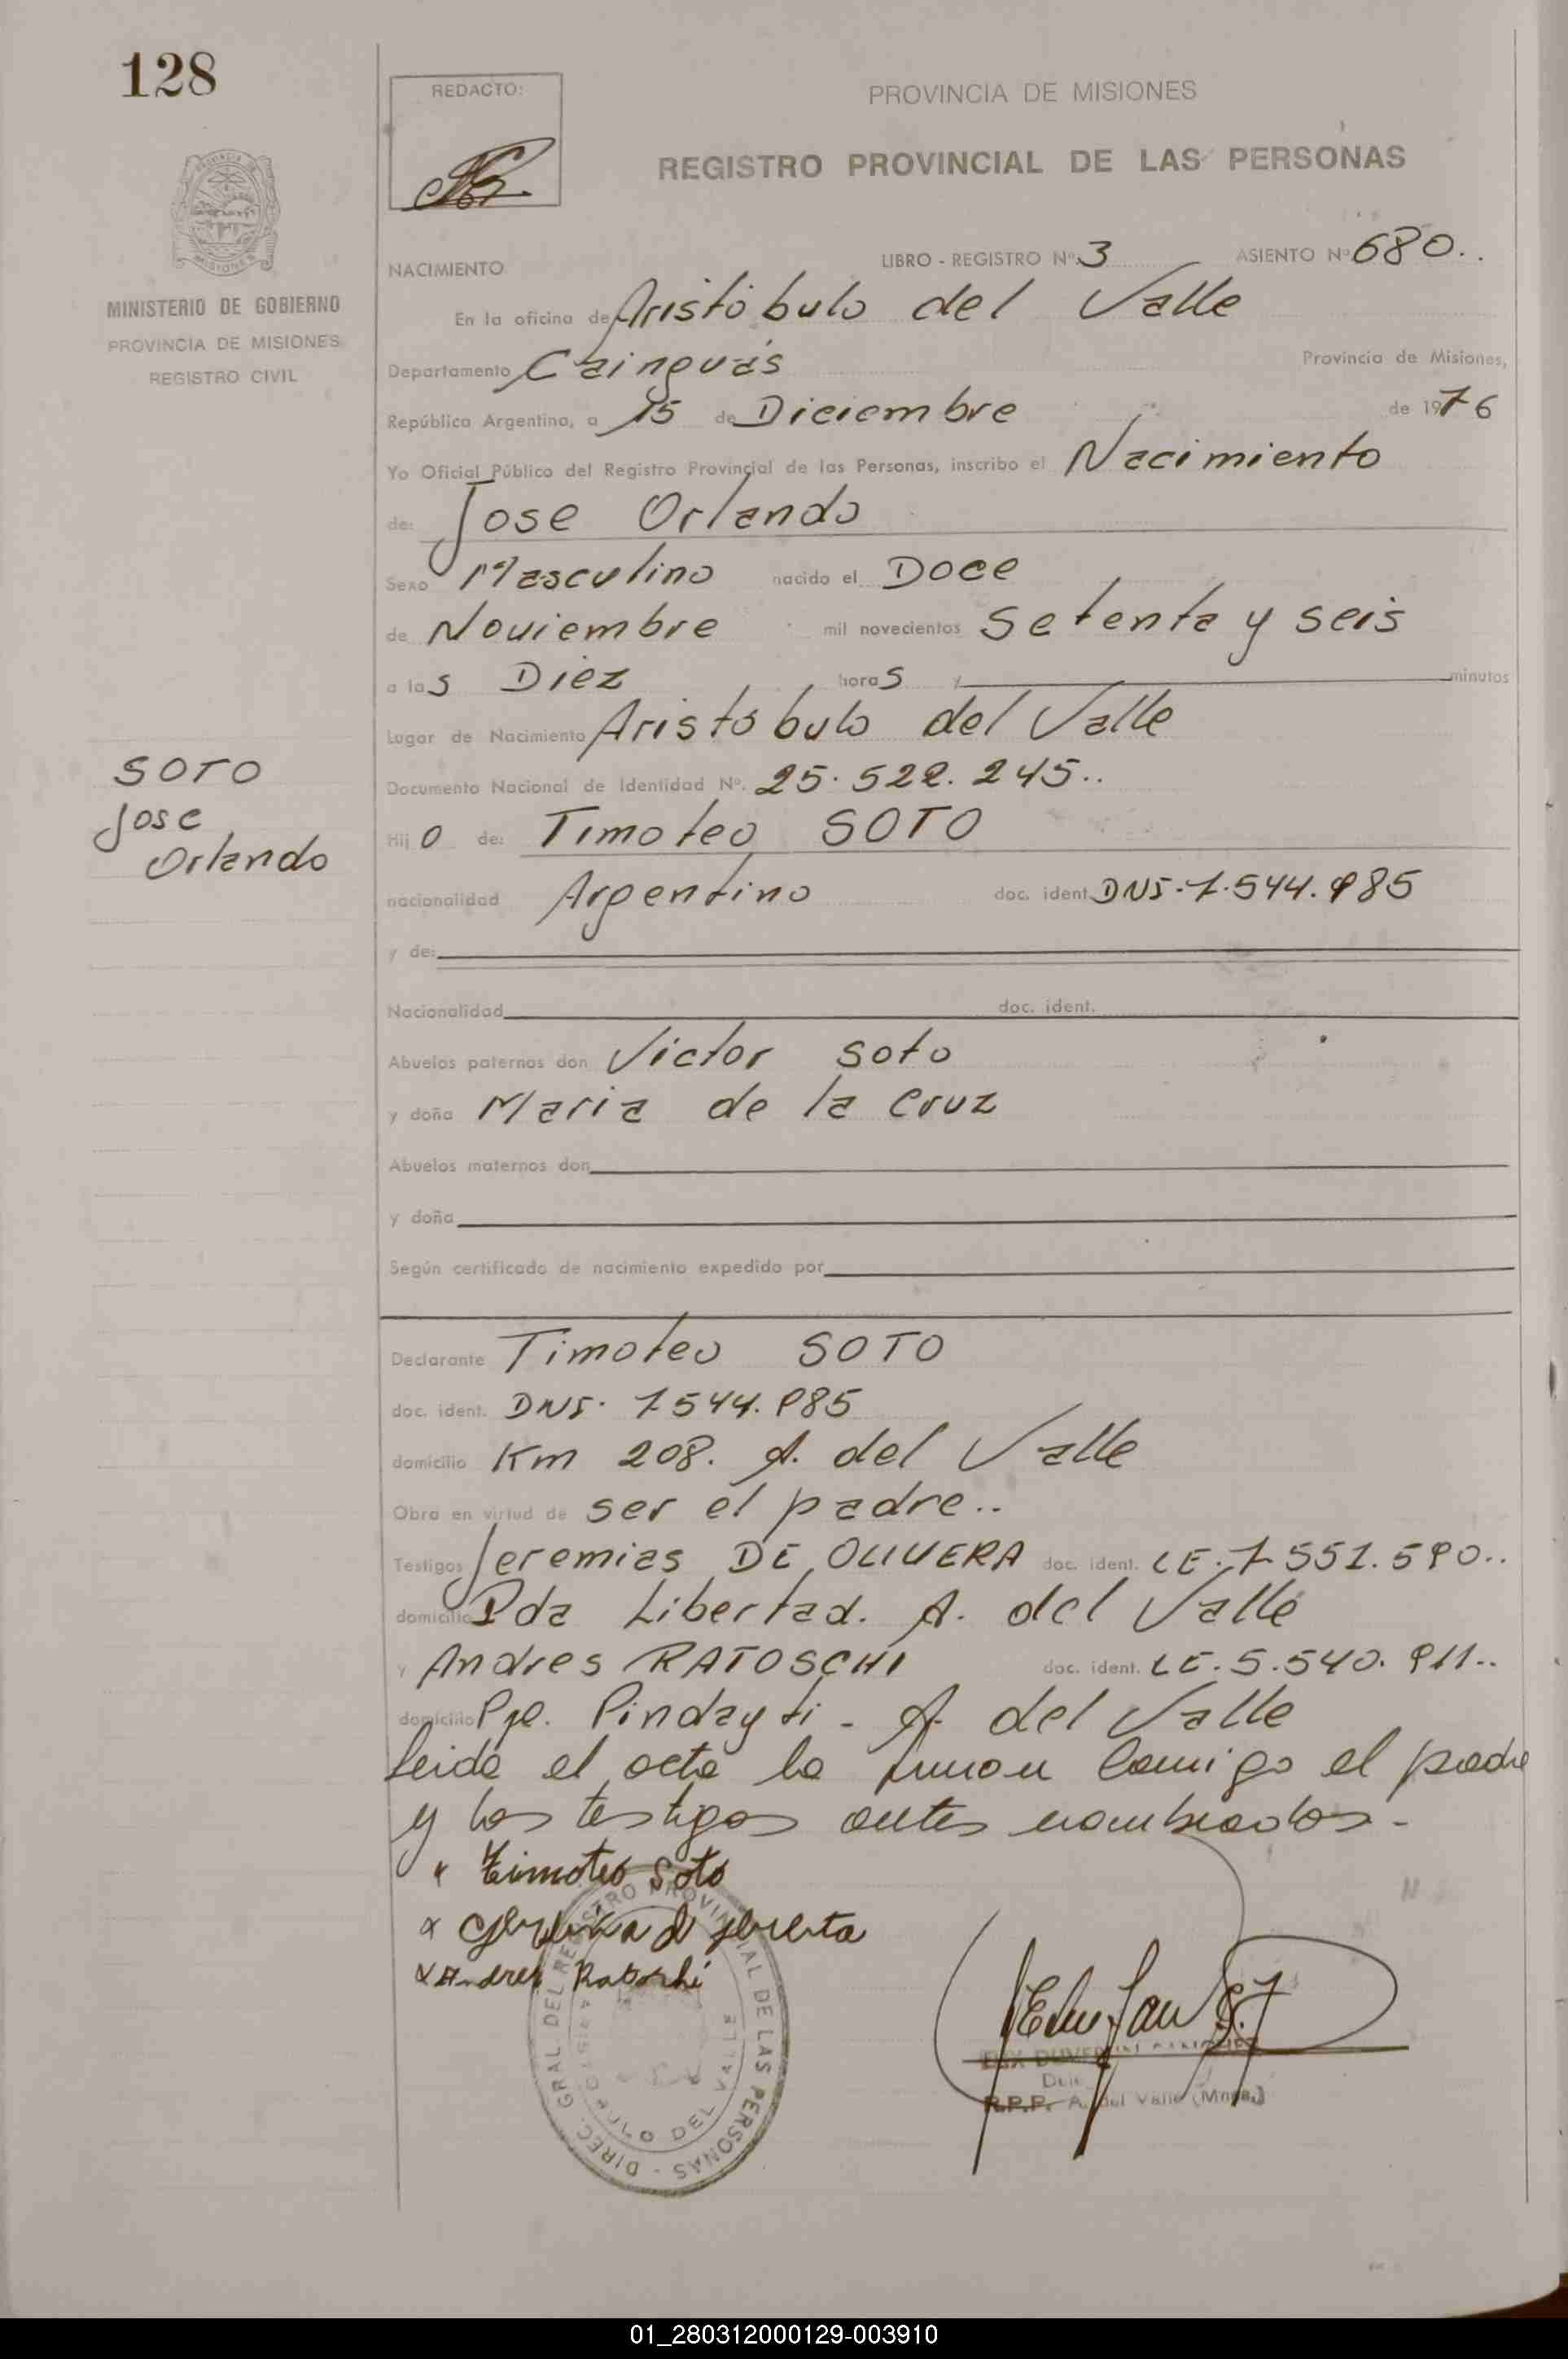 128
REDACTO:
PROVINCIA DE MISIONES
REGISTRO PROVINCIAL DE LAS PERSONAS
MINISTERIO DE GOBIERNO
PROVINCIA DE MISIONES
REGISTRO CIVIL
NACIMIENTO LIBRO - REGISTRO Nº 3 ASIENTO Nº 680..
En la oficina de Aristóbulo del Valle
Departamento Cainguás Provincia de Misiones,
República Argentina, a 15 de Diciembre de 1976
Yo Oficial Público del Registro Provincial de las Personas, inscribo el Nacimiento
de: Jose Orlando
Sexo Masculino nacido el Doce
de Noviembre mil novecientos Setenta y seis
a las Diez horas y minutos
Lugar de Nacimiento Aristóbulo del Valle
SOTO
Jose
Orlando
Documento Nacional de Identidad Nº. 25.522.245..
Hijo de: Timoteo SOTO
nacionalidad Argentino doc. ident. DNI.7.544.985
y de:
Nacionalidad doc. ident.
Abuelos paternos don Victor Soto
y doña Maria de la Cruz
Abuelos maternos don
y doña
Según certificado de nacimiento expedido por
Declarante Timoteo SOTO
doc. ident. DNI. 7544.985
domicilio Km 208. A. del Valle
Obra en virtud de ser el padre..
Testigos Jeremias DE OLIVERA doc. ident. LE.7551.590..
domicilio Pda Libertad. A. del Valle
y Andres RATOSCHI doc. ident. LE.5.540.911..
domicilio Pje. Pindayti - A. del Valle
Leida el acta la firman Conmigo el padre
y los testigos antes nombrados.-
Timoteo Soto
Andres Ratoschi
DIREC. GRAL. DEL REGISTRO PROVINCIAL DE LAS PERSONAS
DEL VALLE
R.P.P. A. del Valle (Mnes.)
01_280312000129-003910